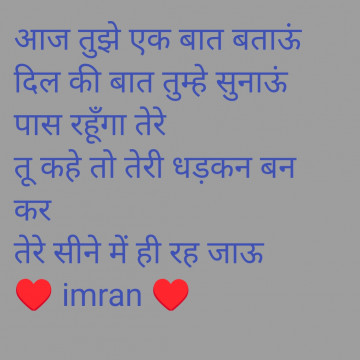 आज तुझे एक बात बताऊं
दिल की बात तुम्हे सुनाऊं
पास रहूँगा तेरे
तू कहे तो तेरी धड़कन बन
कर
तेरे सीने में ही रह जाऊ
❤️ imran ❤️